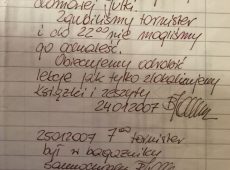 domowej Julki.
Zgubiliśmy tornister
i do 22⁰⁰ nie mogliśmy
go odnaleźć.
Obiecujemy odrobić
lekcje jak tylko zlokalizujemy
książki i zeszyty
24.01.2007
25012007 7⁰⁰ tornister
był w bagażniku
samochodu